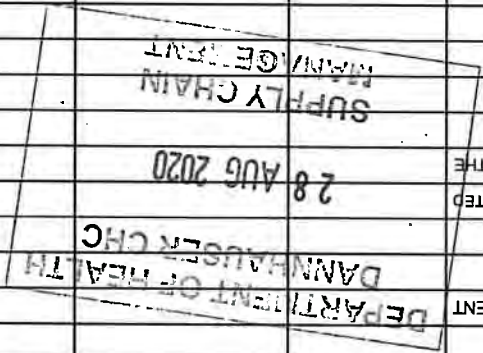 DEPARTMENT OF HEALTH
DANNHAUSER CHC
28 AUG 2020
SUPPLY CHAIN
MANAGEMENT
ENT
TED
THE